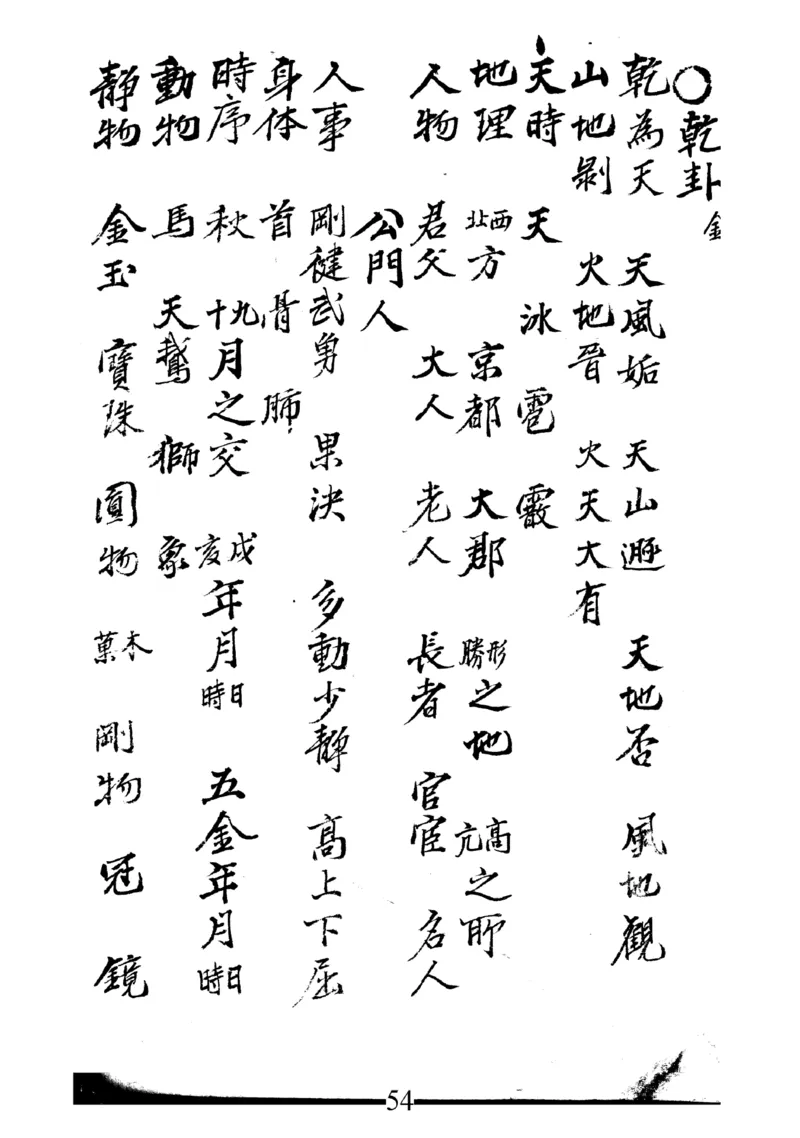 ○乾卦 金
乾為天 天風姤 天山遯 天地否 風地観
山地剝 火地晉 火天大有
天時 天 冰 雹 霰
地理 西北方 京都 大郡 形勝之地 高亢之所
人物 君父 大人 老人 長者 官宦 名人
公門人
人事 剛健武勇 果決 多動少靜 高上下屈
身体 首 骨 肺
時序 秋 九十月之交 戌亥年月日時 五金年月日時
動物 馬 天鵝 獅 象
靜物 金玉 寶珠 圓物 木菓 剛物 冠 鏡
54